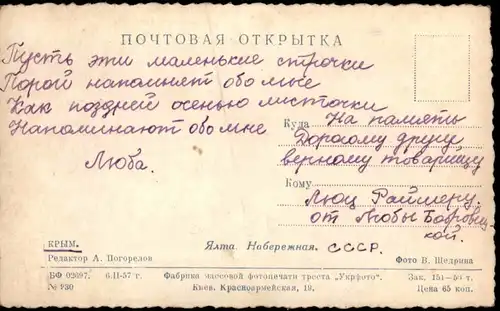 ПОЧТОВАЯ ОТКРЫТКА
Пусть эти маленькие строчки
Порой напомнят обо мне
Как поздней осенью листочки
Напоминают обо мне
Люба.
Куда На память
Дорогому другу,
верному товарищу
Кому
Люц Раймеру.
от Любы
кой.
КРЫМ.
Ялта. Набережная. СССР.
Редактор А. Погорелов
Фото В. Щедрина
БФ 02097. 6.II-57 г.
Фабрика массовой фотопечати треста „Укрфото".
Зак. 151—50 т.
№ 930
Киев, Красноармейская, 19.
Цена 65 коп.